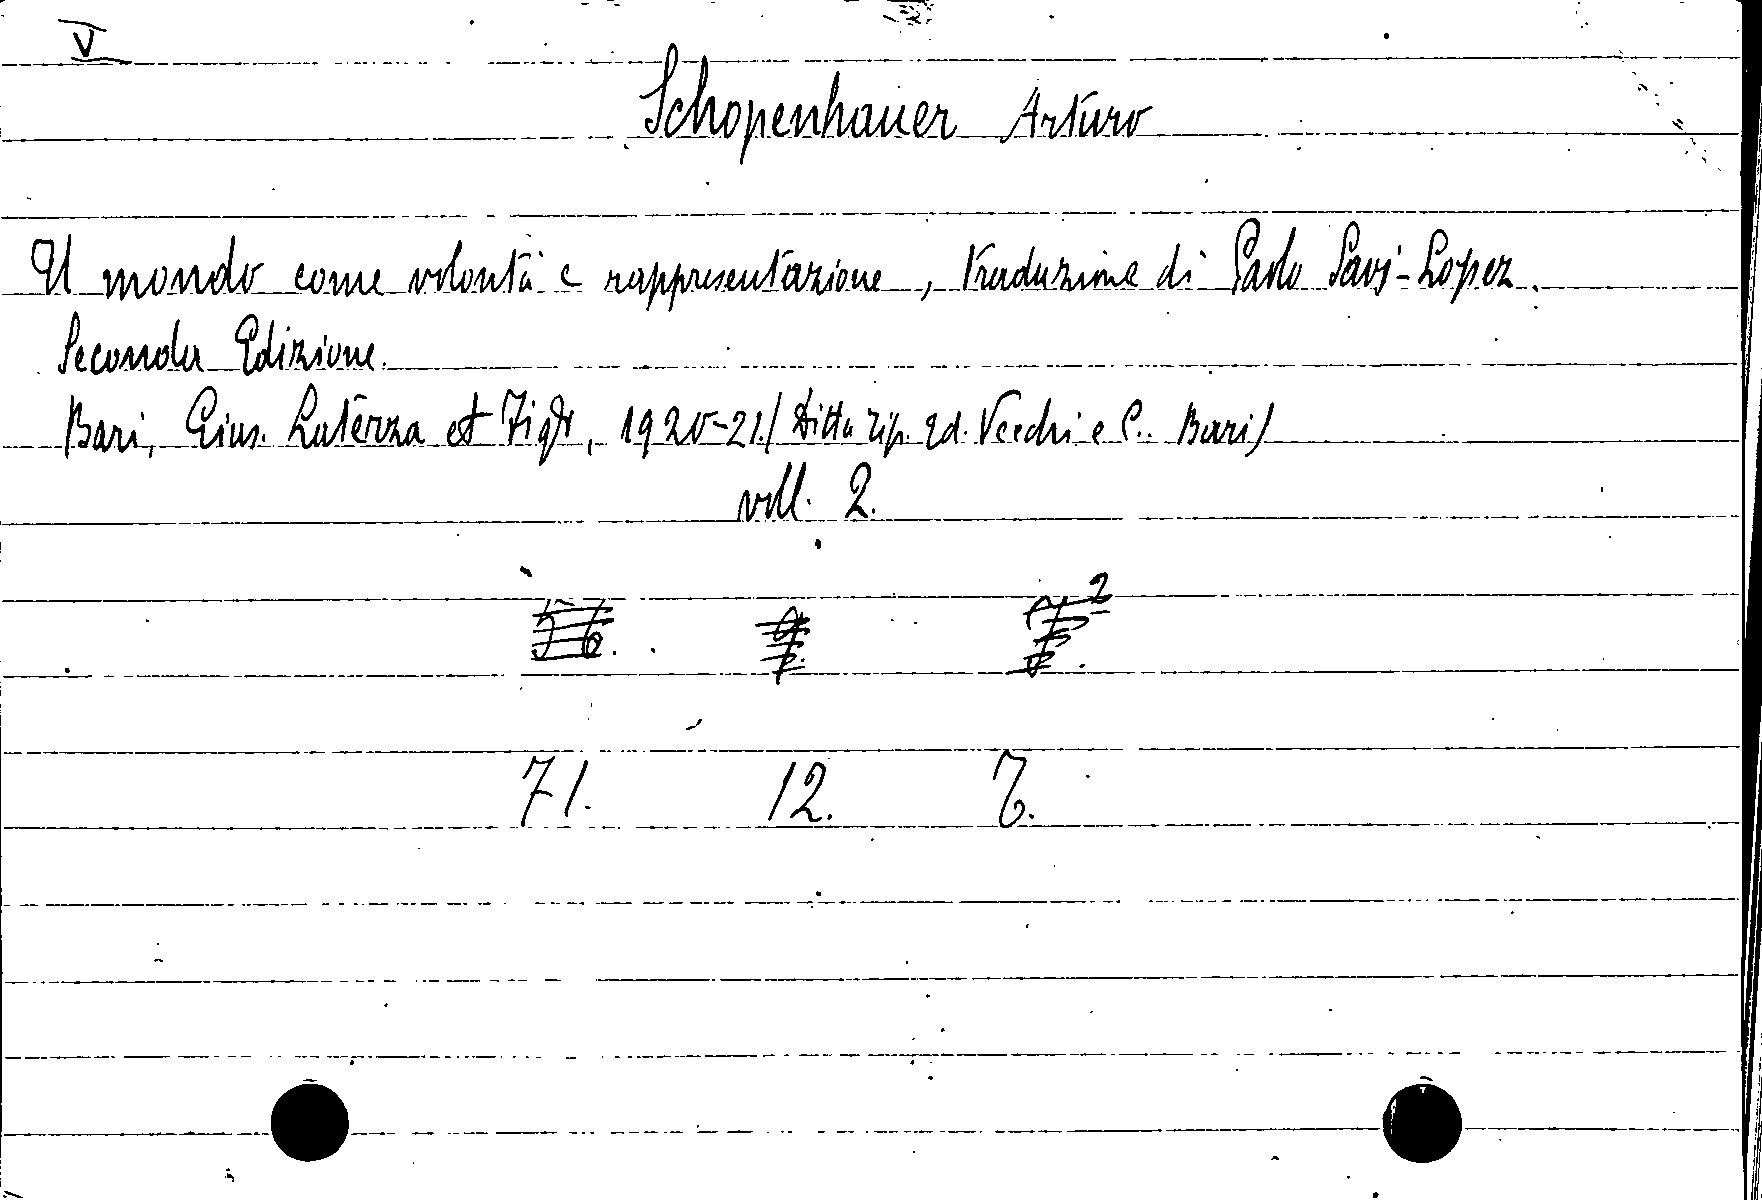 V
Schopenhauer Arturo
Il mondo come volontà e rappresentazione, traduzione di Paolo Savj-Lopez.
Seconda Edizione.
Bari, Gius. Laterza et Figli, 1920-21. (Ditta Tip. Ed. Vecchi e C. Bari)
voll. 2.
71. 12. 7.